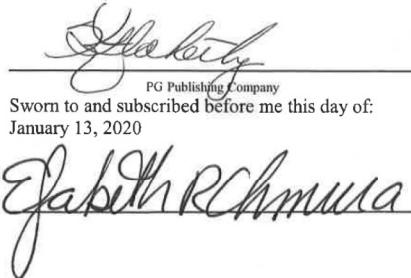 PG Publishing Company
Sworn to and subscribed before me this day of:
January 13, 2020
Elizabeth R Chmura